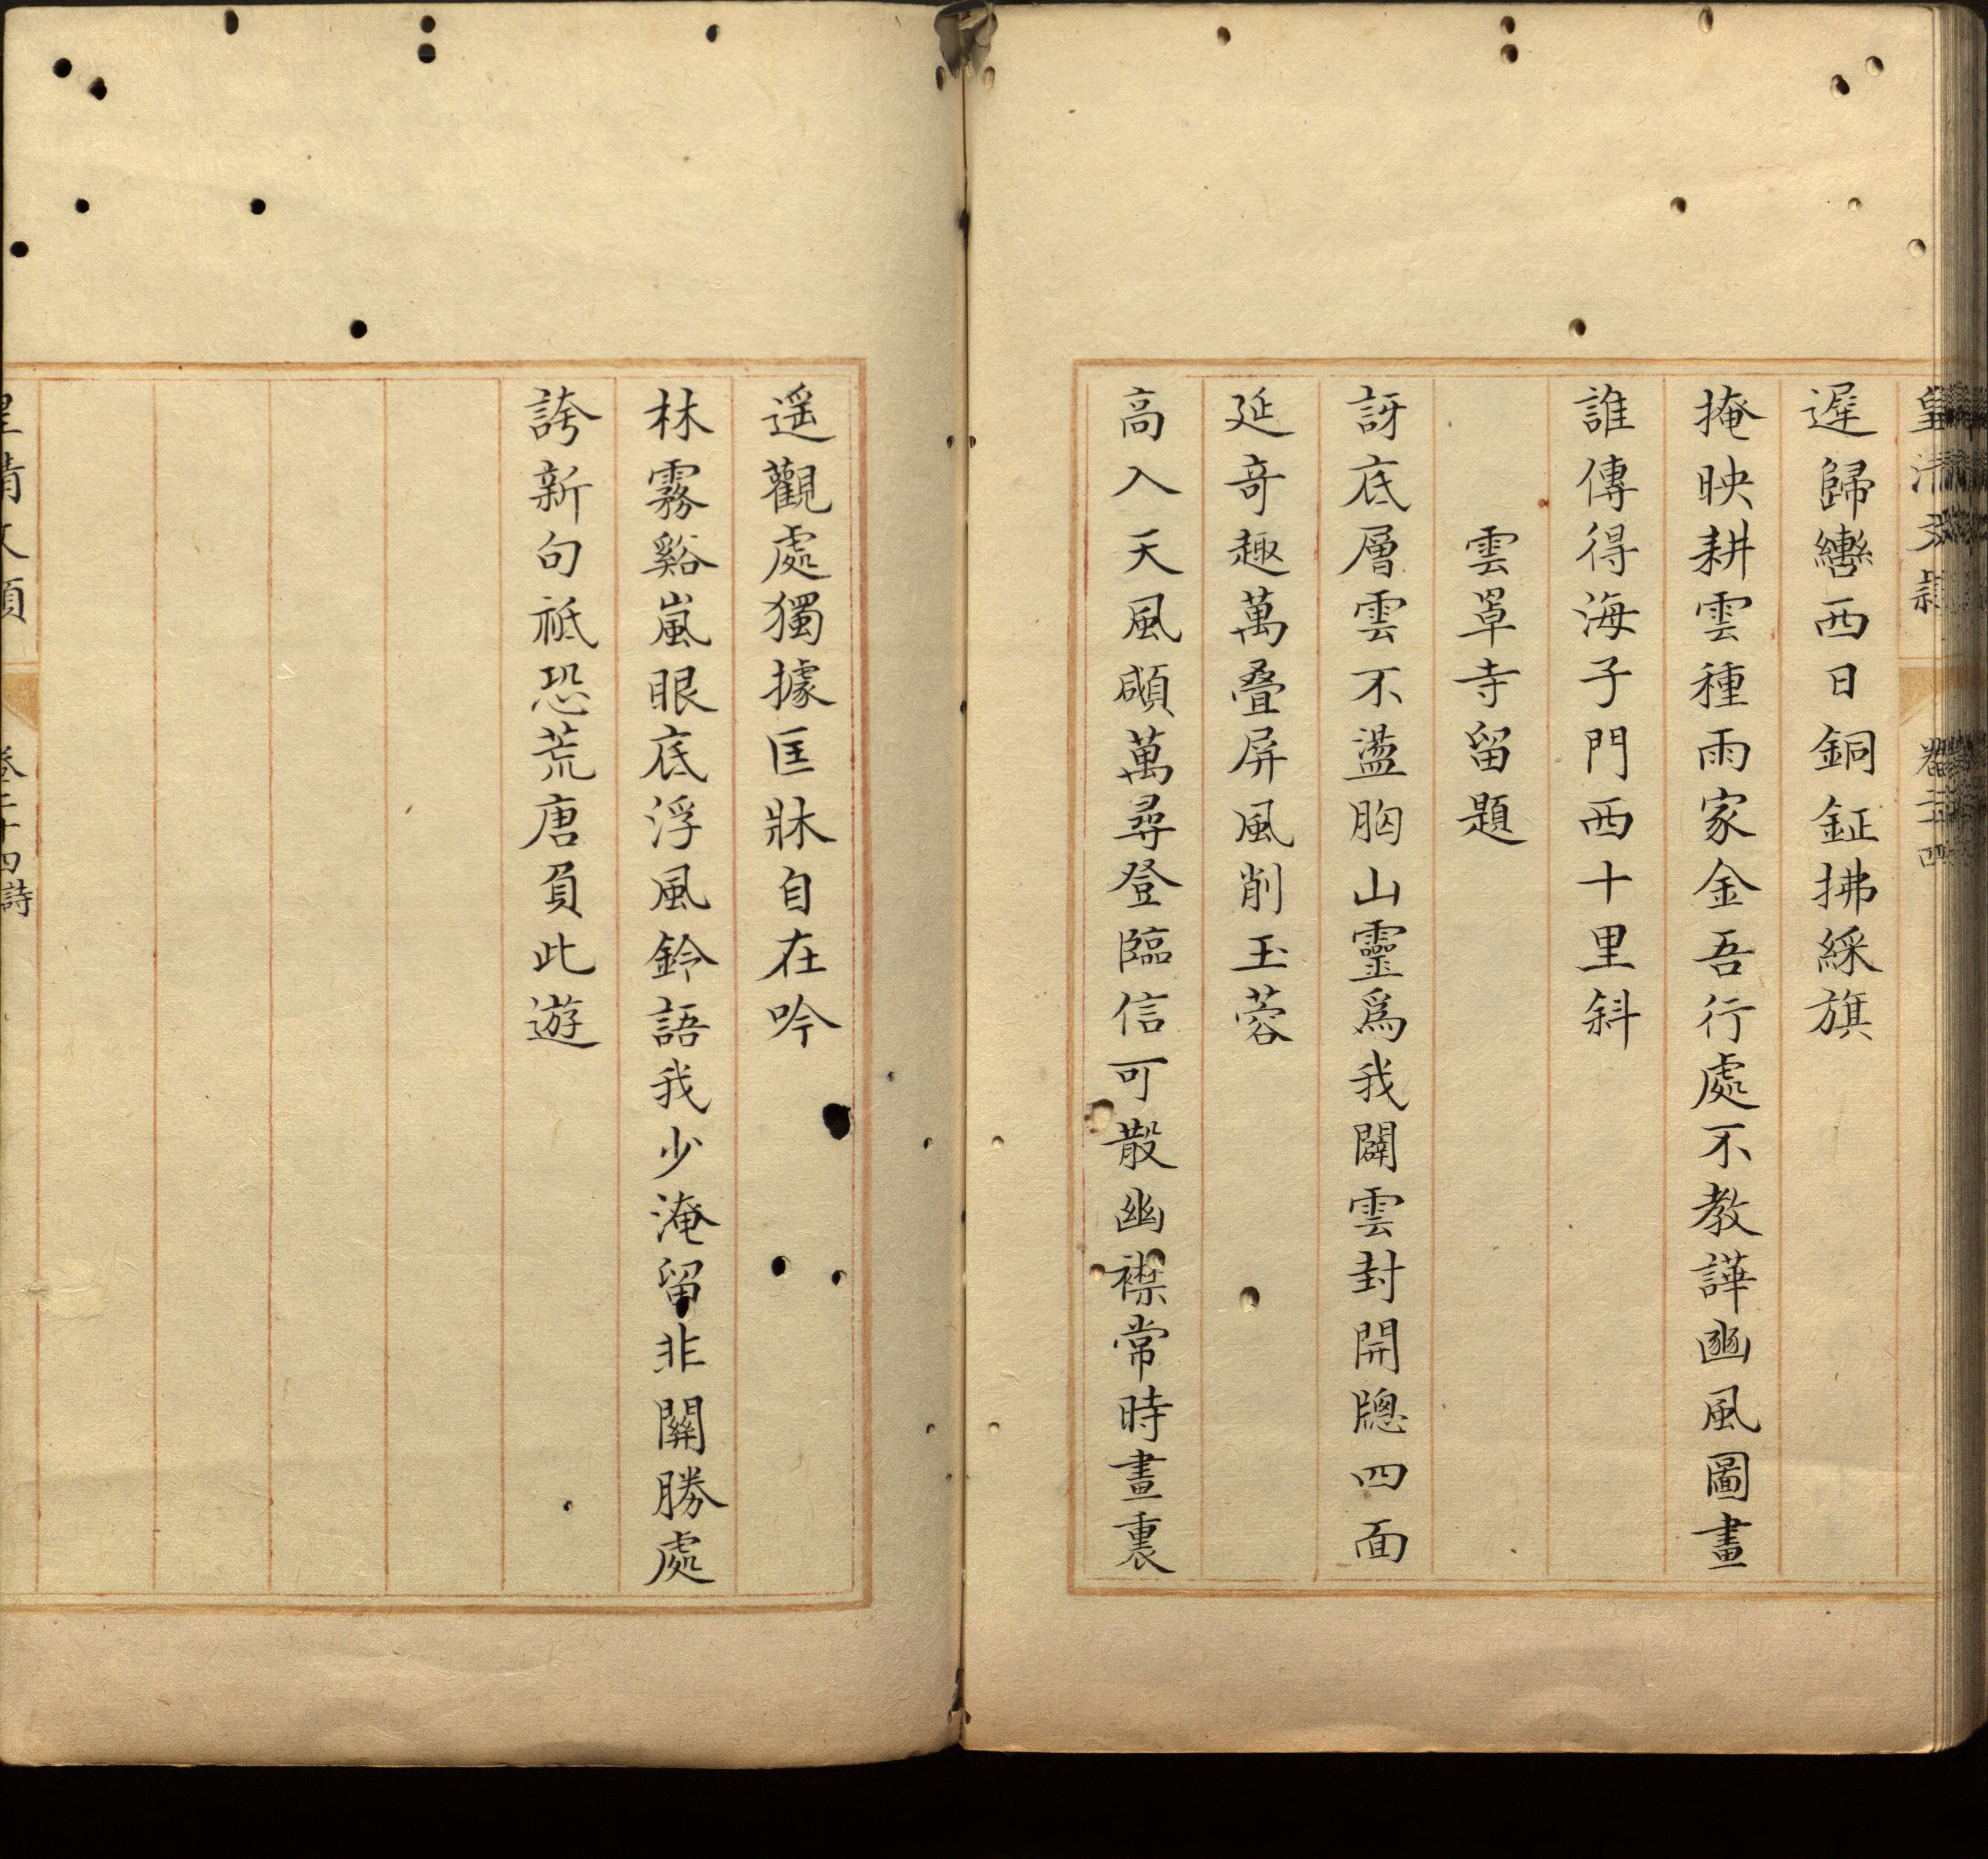 遲歸轡西日銅鉦拂綵旗
掩映耕雲種雨家金吾行處不教譁豳風圖畫
誰傳得海子門西十里斜
雲罩寺留題
訝底層雲不盪胸山靈爲我闢雲封開牕四面
延奇趣萬疊屏風削玉蓉
高入天風頔萬尋登臨信可散幽襟常時畫裏
遥觀處獨據匡牀自在吟
林霧谿嵐眼底浮風鈴語我少淹留非關勝處
誇新句祗恐荒唐負此遊
皇清文穎
卷二十四詩